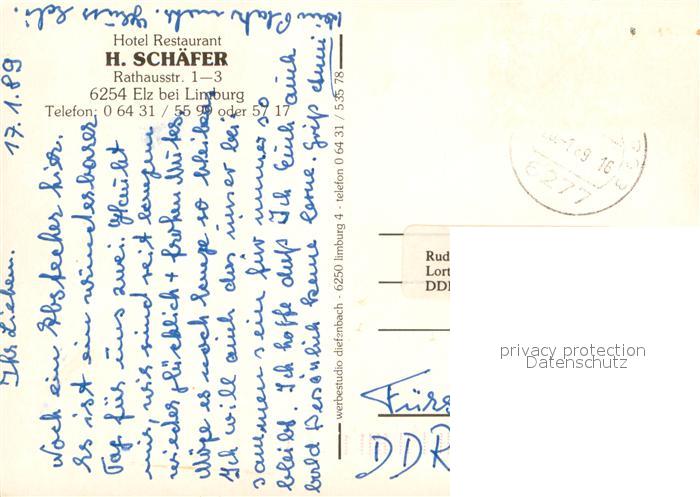 Hotel Restaurant
H. SCHÄFER
Rathausstr. 1—3
6254 Elz bei Limburg
Telefon: 0 64 31 / 55 99 oder 5/ 17
17.1.89
Ihr Lieben.
Noch ein Abstecher hier.
Es ist ein wunderbarer
Tag für uns zwei. Glaubt
mir, wir sind seit langem
wieder glücklich + frohen Mutes.
Möge es noch lange so bleiben
Ich will auch das immer bei
sammen sein für immer so
bleibt. Ich hoffe daß Ich Euch auch
bald Persönlich kenne lerne. Grüß
kein Platz mehr.
werbestudio diefenbach - 6250 limburg 4 - telefon 0 64 31 / 5 35 78
1.89 16
6277
Rud
Lort
DDR
Fürs
DDR
privacy protection
Datenschutz